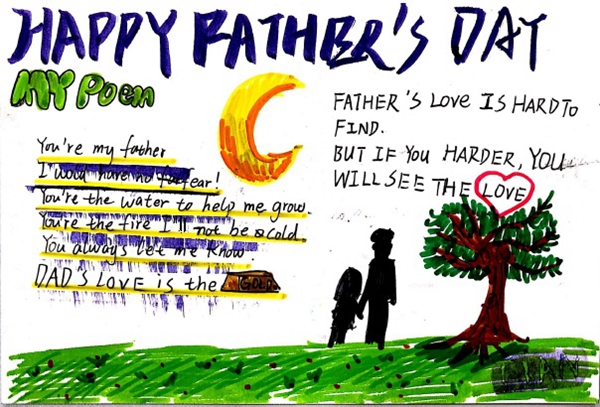 HAPPY FATHER'S DAY
MY Poem
You're my father
I would have no fear!
You're the water to help me grow.
You're the fire I'll not be a cold.
You always let me know
DAD'S LOVE is the GOLD.
FATHER'S LOVE IS HARD TO
FIND.
BUT IF YOU HARDER, YOU
WILL SEE THE LOVE